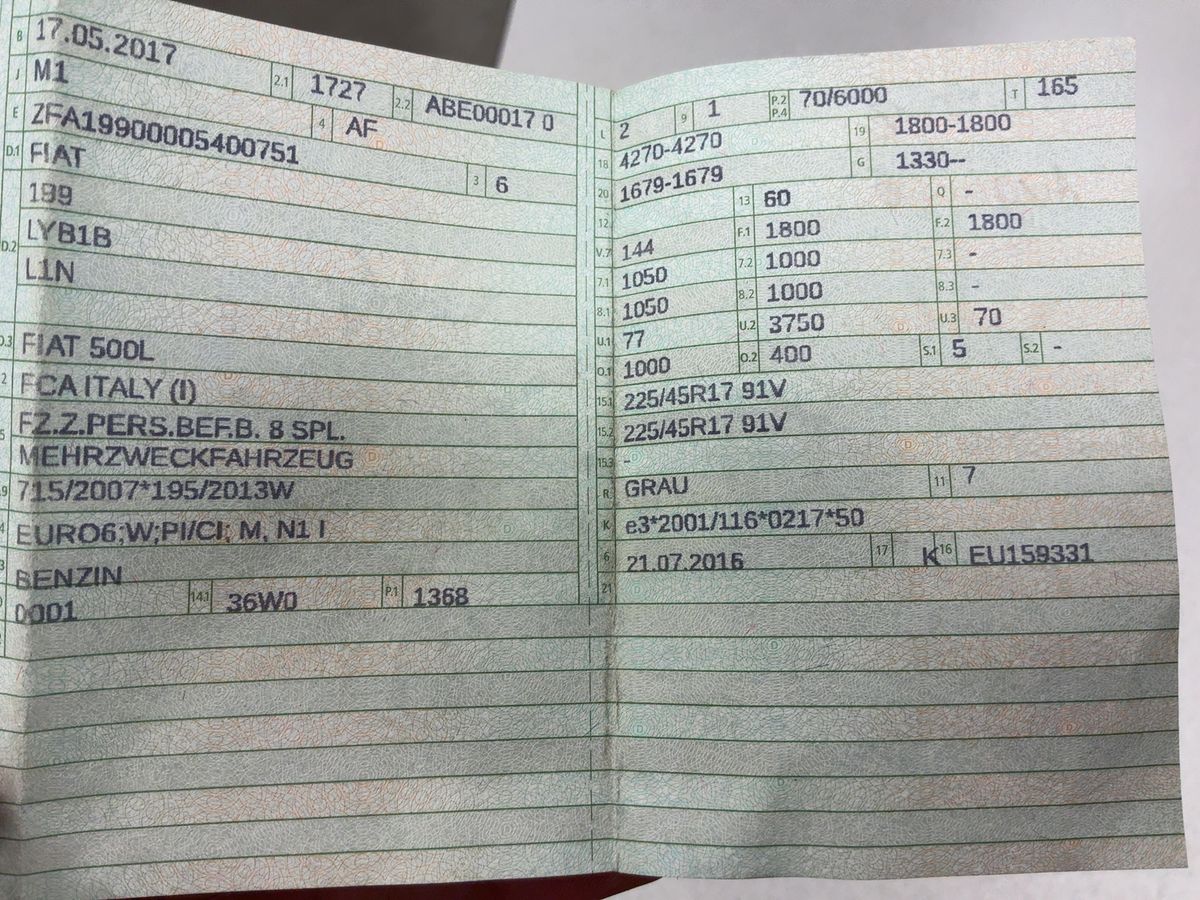 B 17.05.2017 2.1 1727 2.2 ABE00017 0
J M1 4 AF
E ZFA19900005400751 3 6
D.1 FIAT
199
D.2 LYB1B
L1N
D.3 FIAT 500L
2 FCA ITALY (I)
5 FZ.Z.PERS.BEF.B. 8 SPL.
MEHRZWECKFAHRZEUG
9 715/2007*195/2013W
4 EURO6;W;PI/CI; M, N1 I
3 BENZIN
0001 14.1 36W0 P.1 1368
L 2 9 1 P.2 P.4 70/6000 T 165
18 4270-4270 19 1800-1800
20 1679-1679 G 1330--
12 13 60 Q -
V.7 144 F.1 1800 F.2 1800
7.1 1050 7.2 1000 7.3 -
8.1 1050 8.2 1000 8.3 -
U.1 77 U.2 3750 U.3 70
O.1 1000 O.2 400 S.1 5 S.2 -
15.1 225/45R17 91V
15.2 225/45R17 91V
15.3 -
R GRAU 11 7
K e3*2001/116*0217*50
6 21.07.2016 17 K 16 EU159331
21